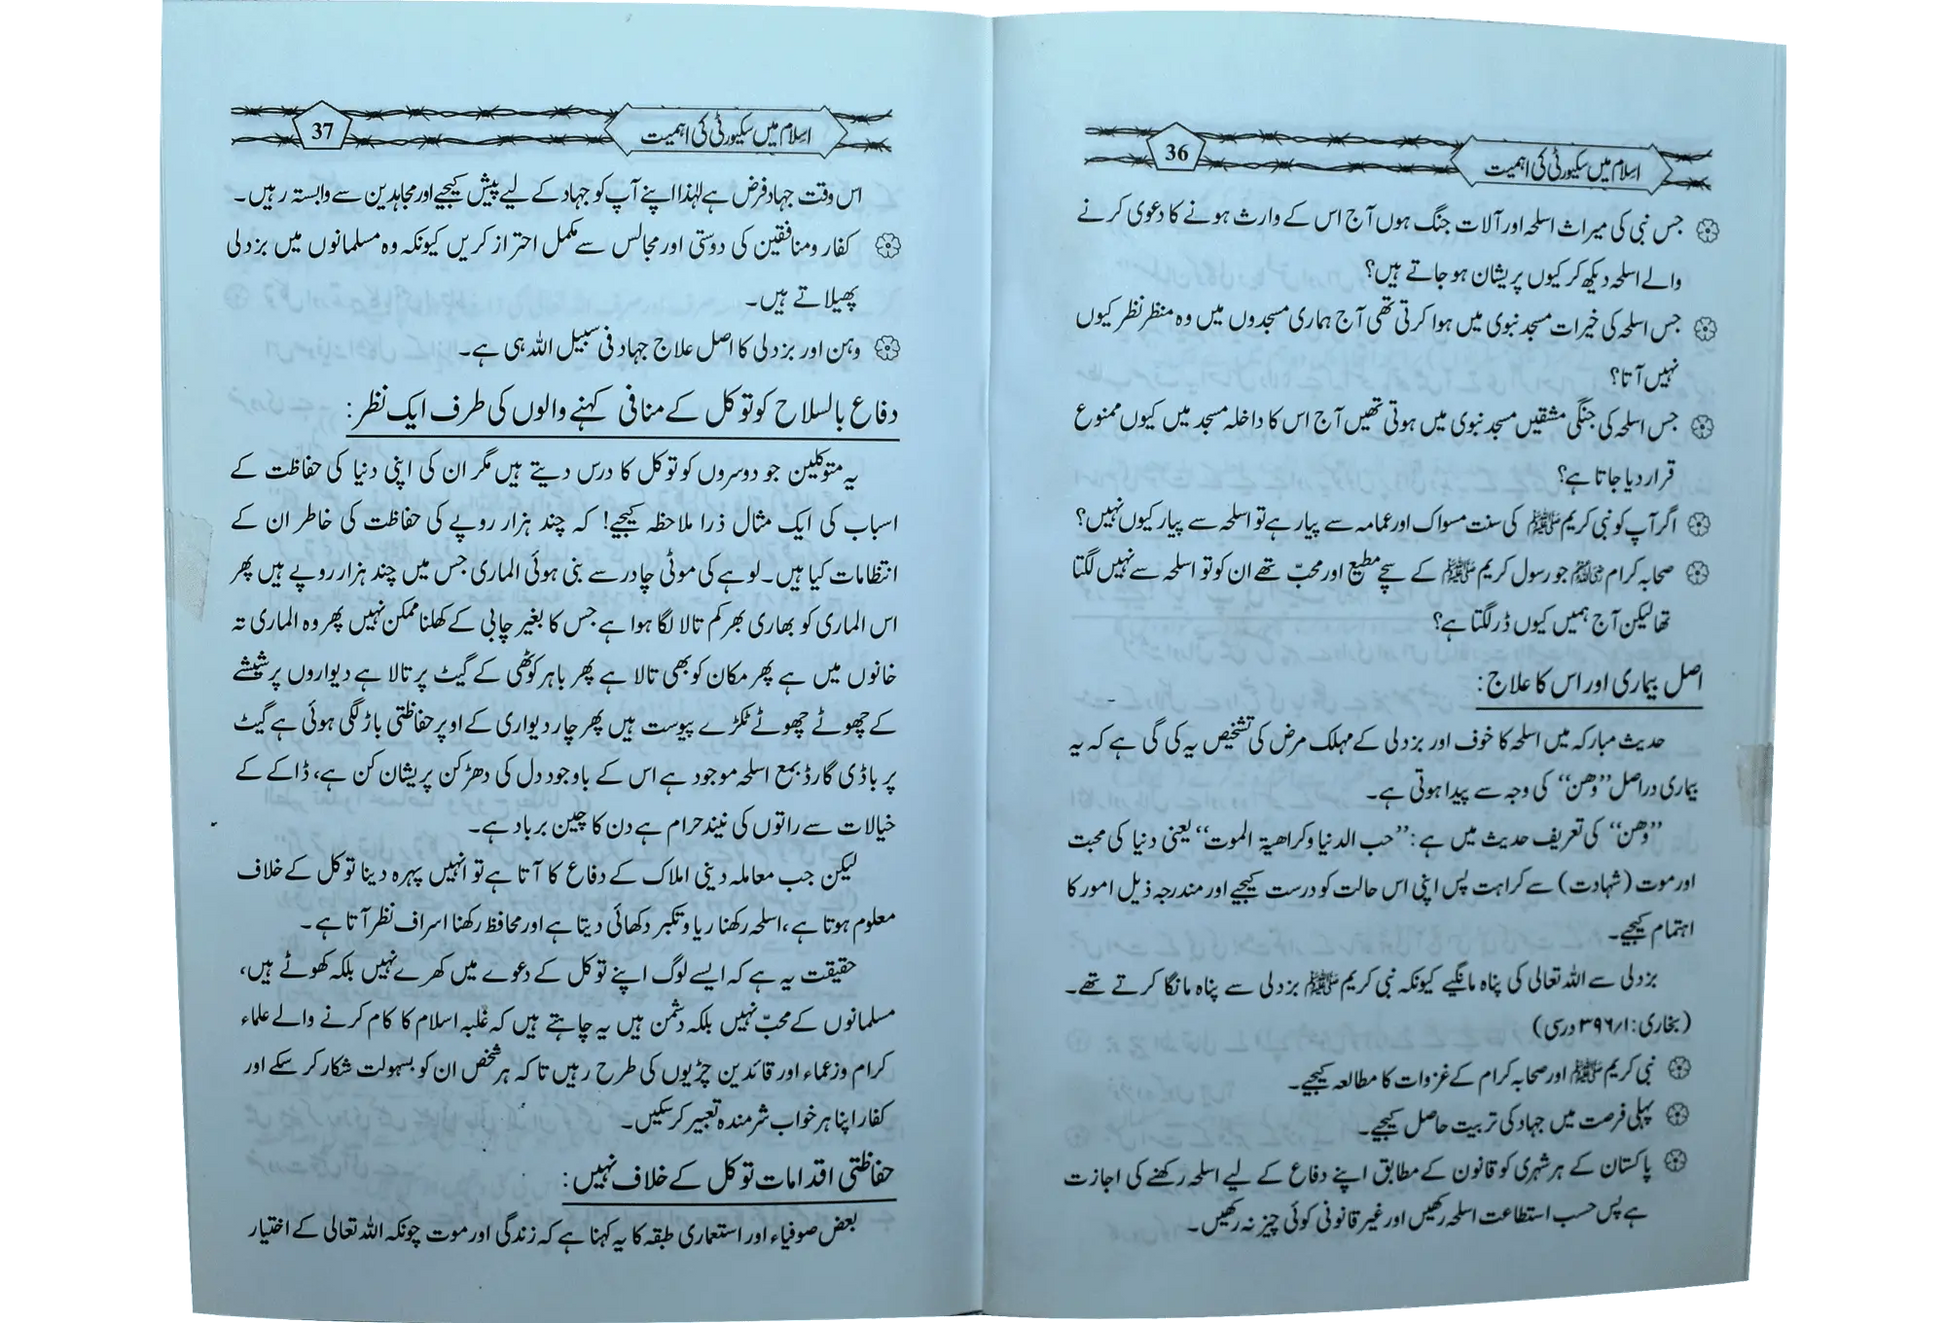 اسلام میں سکیورٹی کی اہمیت
36
جس نبی کی میراث اسلحہ اور آلات جنگ ہوں آج اس کے وارث ہونے کا دعوی کرنے
والے اسلحہ دیکھ کر کیوں پریشان ہو جاتے ہیں؟
جس اسلحہ کی خیرات مسجد نبوی میں ہوا کرتی تھی آج ہماری مسجدوں میں وہ منظر نظر کیوں
نہیں آتا؟
جس اسلحہ کی جنگی مشقیں مسجد نبوی میں ہوتی تھیں آج اس کا داخلہ مسجد میں کیوں ممنوع
قرار دیا جاتا ہے؟
اگر آپ کو نبی کریم ﷺ کی سنت مسواک اور عمامہ سے پیار ہے تو اسلحہ سے پیار کیوں نہیں؟
صحابہ کرام رضی اللہ عنہم جو رسول کریم ﷺ کے سچے مطیع اور محبّ تھے ان کو تو اسلحہ سے نہیں لگتا
تھا لیکن آج ہمیں کیوں ڈر لگتا ہے؟
اصل بیماری اور اس کا علاج:
حدیث مبارکہ میں اسلحہ کا خوف اور بزدلی کے مہلک مرض کی تشخیص یہ کی گی ہے کہ یہ
بیماری دراصل ’’وھن‘‘ کی وجہ سے پیدا ہوتی ہے۔
’’وھن‘‘ کی تعریف حدیث میں ہے: ’’حب الدنیا وکراھیۃ الموت‘‘ یعنی دنیا کی محبت
اور موت (شہادت) سے کراہت پس اپنی اس حالت کو درست کیجیے اور مندرجہ ذیل امور کا
اہتمام کیجیے۔
بزدلی سے اللہ تعالی کی پناہ مانگیے کیونکہ نبی کریم ﷺ بزدلی سے پناہ مانگا کرتے تھے۔
(بخاری: ۱/۳۹۶ درسی)
نبی کریم ﷺ اور صحابہ کرام کے غزوات کا مطالعہ کیجیے۔
پہلی فرصت میں جہاد کی تربیت حاصل کیجیے۔
پاکستان کے ہر شہری کو قانون کے مطابق اپنے دفاع کے لیے اسلحہ رکھنے کی اجازت
ہے پس حسب استطاعت اسلحہ رکھیں اور غیر قانونی کوئی چیز نہ رکھیں۔
اسلام میں سکیورٹی کی اہمیت
37
اس وقت جہاد فرض ہے لہٰذا اپنے آپ کو جہاد کے لیے پیش کیجیے اور مجاہدین سے وابستہ رہیں۔
کفار ومنافقین کی دوستی اور مجالس سے مکمل احتراز کریں کیونکہ وہ مسلمانوں میں بزدلی
پھیلاتے ہیں۔
وہن اور بزدلی کا اصل علاج جہاد فی سبیل اللہ ہی ہے۔
دفاع بالسلاح کو توکل کے منافی کہنے والوں کی طرف ایک نظر:
یہ متوکلین جو دوسروں کو توکل کا درس دیتے ہیں مگر ان کی اپنی دنیا کی حفاظت کے
اسباب کی ایک مثال ذرا ملاحظہ کیجیے! کہ چند ہزار روپے کی حفاظت کی خاطر ان کے
انتظامات کیا ہیں۔ لوہے کی موٹی چادر سے بنی ہوئی الماری جس میں چند ہزار روپے ہیں پھر
اس الماری کو بھاری بھرکم تالا لگا ہوا ہے جس کا بغیر چابی کے کھلنا ممکن نہیں پھر وہ الماری تہ
خانوں میں ہے پھر مکان کو بھی تالا ہے پھر باہر کوٹھی کے گیٹ پر تالا ہے دیواروں پر شیشے
کے چھوٹے چھوٹے ٹکڑے پیوست ہیں پھر چار دیواری کے اوپر حفاظتی باڑ لگی ہوئی ہے گیٹ
پر باڈی گارڈ بمع اسلحہ موجود ہے اس کے باوجود دل کی دھڑکن پریشان کن ہے، ڈاکے کے
خیالات سے راتوں کی نیند حرام ہے دن کا چین برباد ہے۔
لیکن جب معاملہ دینی املاک کے دفاع کا آتا ہے تو انہیں پہرہ دینا توکل کے خلاف
معلوم ہوتا ہے، اسلحہ رکھنا ریا وتکبر دکھائی دیتا ہے اور محافظ رکھنا اسراف نظر آتا ہے۔
حقیقت یہ ہے کہ ایسے لوگ اپنے توکل کے دعوے میں کھرے نہیں بلکہ کھوٹے ہیں،
مسلمانوں کے محبّ نہیں بلکہ دشمن ہیں یہ چاہتے ہیں کہ غلبہ اسلام کا کام کرنے والے علماء
کرام وزعماء اور قائدین چڑیوں کی طرح رہیں تاکہ ہر شخص ان کو بسہولت شکار کر سکے اور
کفار اپنا ہر خواب شرمندہ تعبیر کر سکیں۔
حفاظتی اقدامات توکل کے خلاف نہیں:
بعض صوفیاء اور استعماری طبقہ کا یہ کہنا ہے کہ زندگی اور موت چونکہ اللہ تعالی کے اختیار